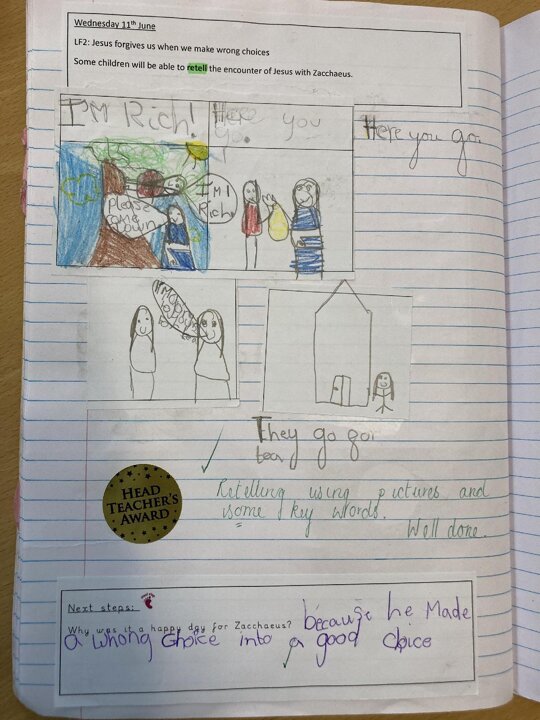 Wednesday 11th June
LF2: Jesus forgives us when we make wrong choices
Some children will be able to retell the encounter of Jesus with Zacchaeus.
I'M Rich!
Here you
go.
Here you go.
Please
come
down
I'M
Rich.
They go for
tea
HEAD
TEACHER'S
AWARD
Retelling using pictures and
some key words.
Well done.
Next steps:
Why was it a happy day for Zacchaeus? because he Made
a wrong choice into a good choice